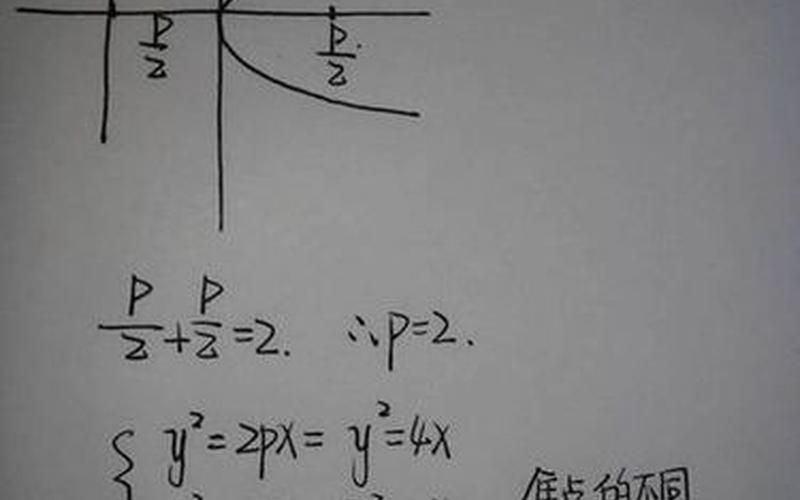 p/2 p/2
p/2 + p/2 = 2. ∴ p = 2.
{ y² = 2px = y² = 4x
焦点的不同